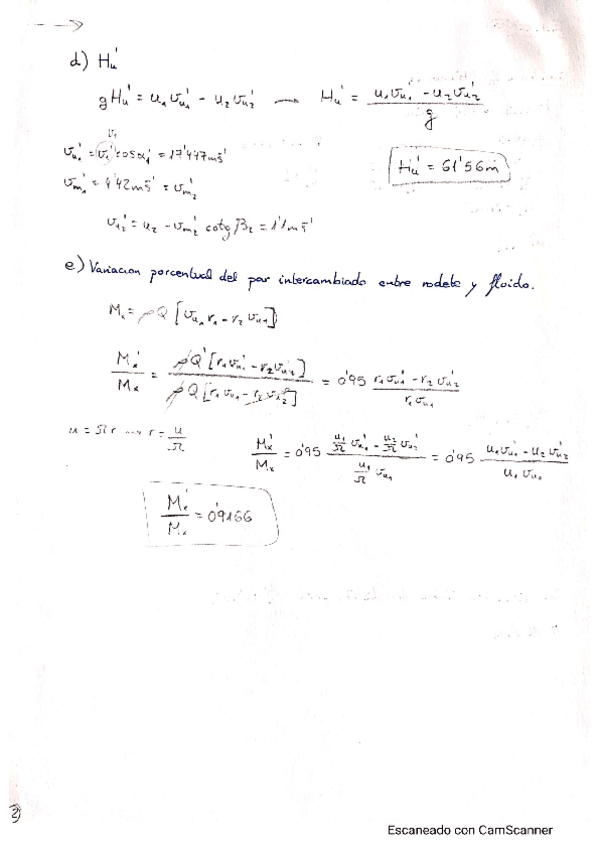 d) Hu'
gHu' = u₁vu₁' - u₂vu₂' → Hu' = (u₁vu₁' - u₂vu₂')/g
v₁
vu₁' = v₁' cosα₁' = 17'447ms⁻¹
Hu' = 61'56m
vm₁' = 4'42ms⁻¹ = vm₂'
vu₂' = u₂ - vm₂' cotg β₂ = 1'1ms⁻¹
e) Variacion porcentual del par intercambiado entre rodete y fluido.
Mx = ρQ [vu₁ r₁ - r₂ vu₂]
Mx'/Mx = ρQ' [r₁vu₁' - r₂vu₂'] / ρQ [r₁vu₁ - r₂vu₂] = 0'95 (r₁vu₁' - r₂vu₂')/(r₁vu₁)
u = Ωr → r = u/Ω
Mx'/Mx = 0'95 (u₁/Ω vu₁' - u₂/Ω vu₂')/(u₁/Ω vu₁) = 0'95 (u₁vu₁' - u₂vu₂')/(u₁vu₁)
Mx'/Mx = 0'9166
2)
Escaneado con CamScanner